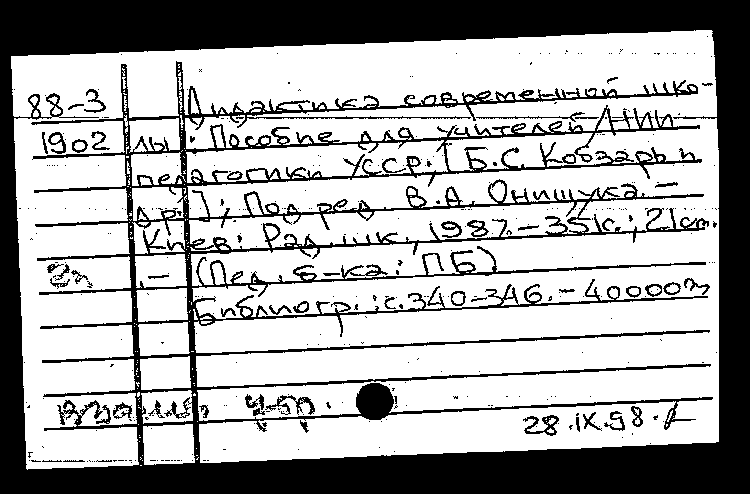 88-3 Дидактика современной шко-
1902 лы: Пособие для учителей / НИИ
педагогики УССР; [Б.С. Кобзарь и
др.]; Под ред. В.А. Онищука. —
Киев: Рад. шк., 1987. — 351с.; 21см.
2п .— (Пед. б-ка: ПБ)
Библиогр.: с.340-346. — 40000
28.IX.98.